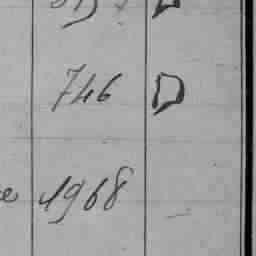 746 D
1968